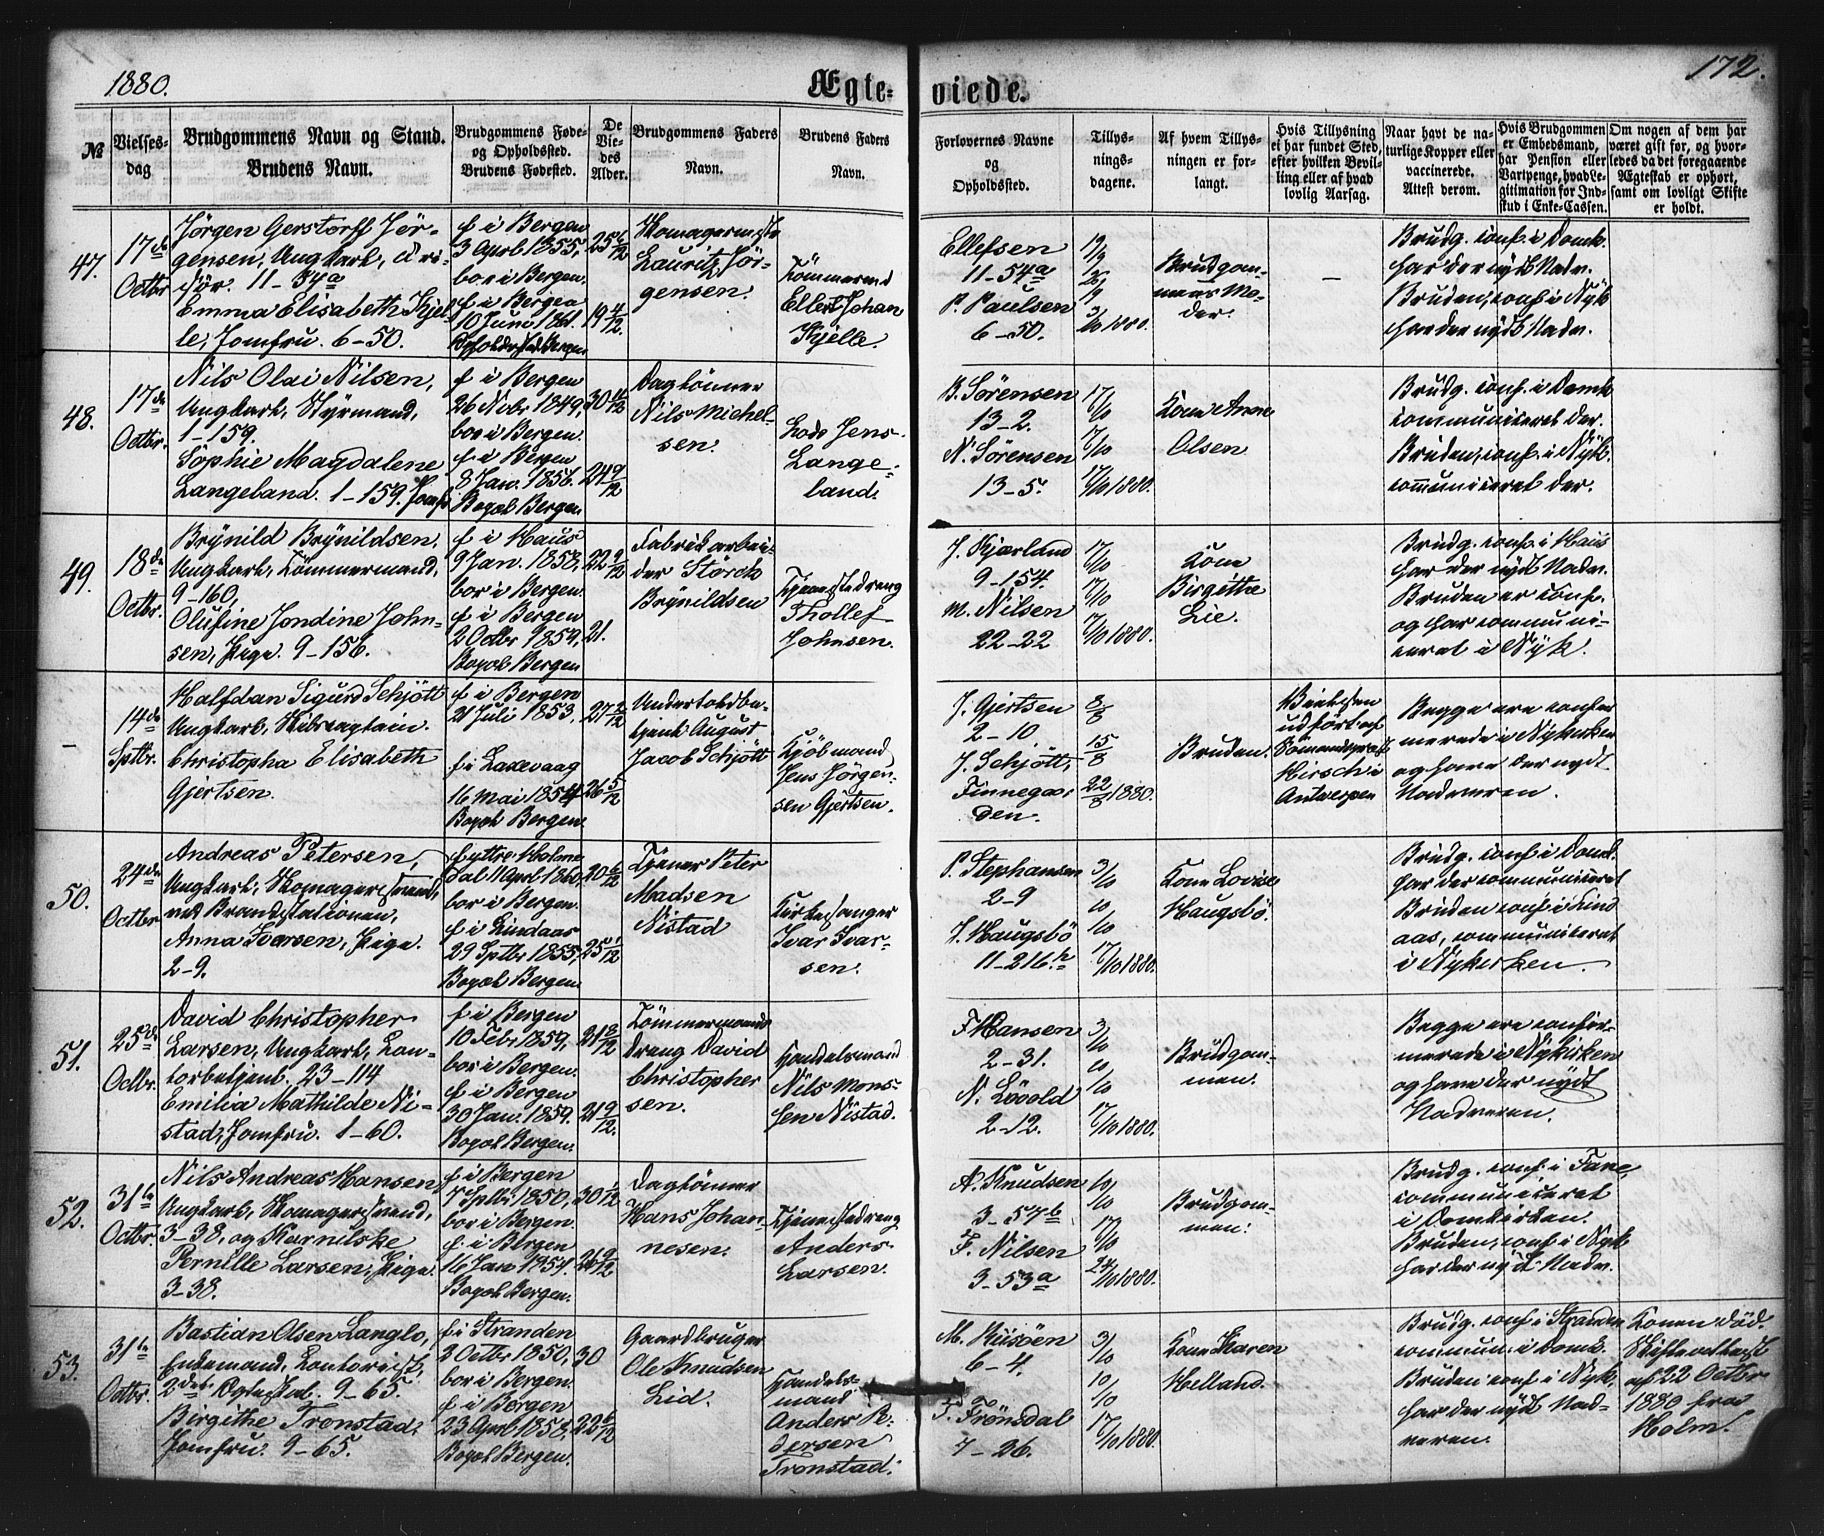 1880.
Ægte-
viede.
172.
№
Vielses-
dag
Brudgommens Navn og Stand.
Brudens Navn.
Brudgommens Føde-
og Opholdssted.
Brudens Fødested.
De
Vie-
des
Alder.
Brudgommens Faders
Navn.
Brudens Faders
Navn.
Forlovernes Navne
og
Opholdssted.
Tillys-
nings-
dagene.
Af hvem Tillys-
ningen er for-
langt.
Hvis Tillysning
ei har fundet Sted,
efter hvilken Bevil-
ling eller af hvad
lovlig Aarsag.
Naar havt de na-
turlige Kopper eller
vaccinerede.
Attest derom.
Hvis Brudgommen
er Embedsmand,
har Pension eller
Vartpenge, hvad Le-
gitimation for Ind-
skud i Enke-Cassen.
Om nogen af dem har
været gift før, og hvor-
ledes da det foregaaende
Ægteskab er ophørt,
samt om lovligt Skifte
er holdt.
47.
17de
Octbr
Jørgen Gerstorff Jør-
gensen, Ungkarl,
11-54a
Emma Elisabeth Kjel-
le, Jomfru. 6-50.
f i Bergen
3 April 1855,
bor i Bergen.
f i Bergen
10 Juni 1861.
Bergen
25 6/12
19 4/12.
Lauritz Jør-
gensen.
Tømmermd
Ellert Johan
Kjelle.
Ellefsen
11-54a
P. Paulsen
6-50.
19/9
26/9
3/10 1880.
Brudgom-
mens Mo-
der.
—
Brudg. conf. i Domk.
har der nydt Nadv.
Bruden, conf. i Nyk
har der nydt Nadv.
48.
17de
Octbr.
Nils Olai Nilsen,
Ungkarl, Styrmand,
1-159.
Sophie Magdalene
Langeland. 1-159. Jomfr
f i Bergen
26 Novbr 1849,
bor i Bergen.
f i Bergen
8 Jan. 1856.
Bopæl Bergen
24 9/12
Dagtønner
Nils Michel-
sen.
Lods Jens
Lange-
land.
B. Sørensen
13-2.
N. Sørensen
13-5.
17/10 1880.
Kone Anne
Olsen
Brudg. conf. i Domk
communiceret der.
Bruden, conf. i Nyk.
communiceret der.
49.
18de
Octbr.
Brynild Brynildsen,
Ungkarl, Tømmermand,
9-160,
Olufine Jondine John-
sen, Pige. 9-156.
f i Haus
9 Jan. 1858,
bor i Bergen.
f i Bergen
2 Octbr 1859,
Bopæl Bergen
22 9/12
21.
Fabrikarbei-
der Störck
Brynildsen
Tjenestedreng
Thollef
Johnsen.
J. Kjærland
9-154.
M. Nilsen
22-22
17/10 1880.
Kone
Birgitthe
Lie.
Brudg. conf. i Haus
har der nydt Nadv.
Bruden er conf.
og har communi-
ceret i Nyk.
—
14de
Sptbr.
Halfdan Sigurd Schjøtt
Ungkarl, Skibscaptain.
Christopha Elisabeth
Gjertsen.
f i Bergen
21 Juli 1853.
f i Laxevaag
16 Mai 1854
Bopæl Bergen.
27 2/12
26 5/12
Undertoldbe-
tjent August
Jacob Schjøtt
Kjøbmand
Jens Jørgen-
sen Gjertsen.
J. Gjertsen
2-10
J. Schjøtt,
Finnegaar-
den.
8/8
15/8
22/8 1880.
Bruden.
Vielsen
udført af
Sømandspræst
Hirsch i
Antwerpen
Begge ere confir
merede i Nykirken
og have der nydt
Nadveren.
50.
24de
Octbr
Andreas Petersen,
Ungkarl, Skomagersvend,
ved Brandstationen,
Anna Ivarsen, Pige.
2-9.
f yttre Holme
dal 11 April 1860,
bor i Bergen.
f i Lindaas
29 Sptbr 1855,
Bopæl Bergen.
20 6/12
25 1/12
Tjener Peter
Madsen
Nistad
Kirkesanger
Ivar Ivar-
sen.
P. Stephansen
2-9
J. Haugsbø
11-216.h
3/10
10/10
17/10 1880.
Kone Lovise
Haugsbø.
Brudg. conf. i Domk.
har der communiceret
Bruden conf. i Lind
aas, communiceret
i Nykirken.
51.
25de
Octbr.
David Christopher
Larsen, Ungkarl, Con-
torbetjent. 23-114
Emilia Mathilde Ni-
stad, Jomfru. 1-60.
f i Bergen
10 Febr 1859,
bor i Bergen.
f i Bergen
30 Jan. 1859.
Bopæl Bergen.
21 8/12
21 9/12.
Tømmermands
dreng David
Christopher
sen.
Handelsmand
Nils Mons-
sen Nistad.
F Hansen
2-31.
N. Løvold
2-12.
3/10
10/10
17/10 1880.
Brudgom-
men.
Begge ere confir-
merede i Nykirken
og have der nydt
Nadveren.
52.
31te
Octbr.
Nils Andreas Hansen
Ungkarl, Skomagersvend,
3-38, og Karnilske
Pernille Larsen, Pige.
3-38.
f i Bergen
7 Sptbr 1850,
bor i Bergen.
f. i Bergen
16 Jan 1854.
Bopæl Bergen.
30 1/12
26 9/12
Dagtønner
Hans Johan-
nesen.
Tjenestedreng
Anders
Larsen.
A. Knudsen
3-57b
F. Nilsen
3-53a
10/10
17/10
24/10 1880.
Brudgom-
men.
Brudg. conf. i Fane,
communiceret
i Domkirken.
Bruden, conf i Nyk
har der nydt Nadv.
53.
31te
Octbr.
Bastian Olsen Langlo,
Enkemand, Contorist,
2det Ægteskab. 9-65
Birgithe Tronstad,
Jomfru. 9-65.
f i Stranden
2 Octbr 1850,
bor i Bergen.
f i Bergen
23 April 1858.
Bopæl Bergen.
30
22 6/12
Gaardbruger
Ole Knudsen
Lid.
Handels
mand
Anders P.
dersen
Tronstad.
M. Riisøen
6-4.
T. Trönsdal
7-26.
3/10
10/10
17/10 1880.
Kone Karen
Helland.
Brudg. conf. i Stranden
commun. i Domk.
Bruden conf. i Nyk,
har der nydt Nad-
veren.
Konen død.
Skifteattest
af 22 Octbr
1880 fra
Holm.